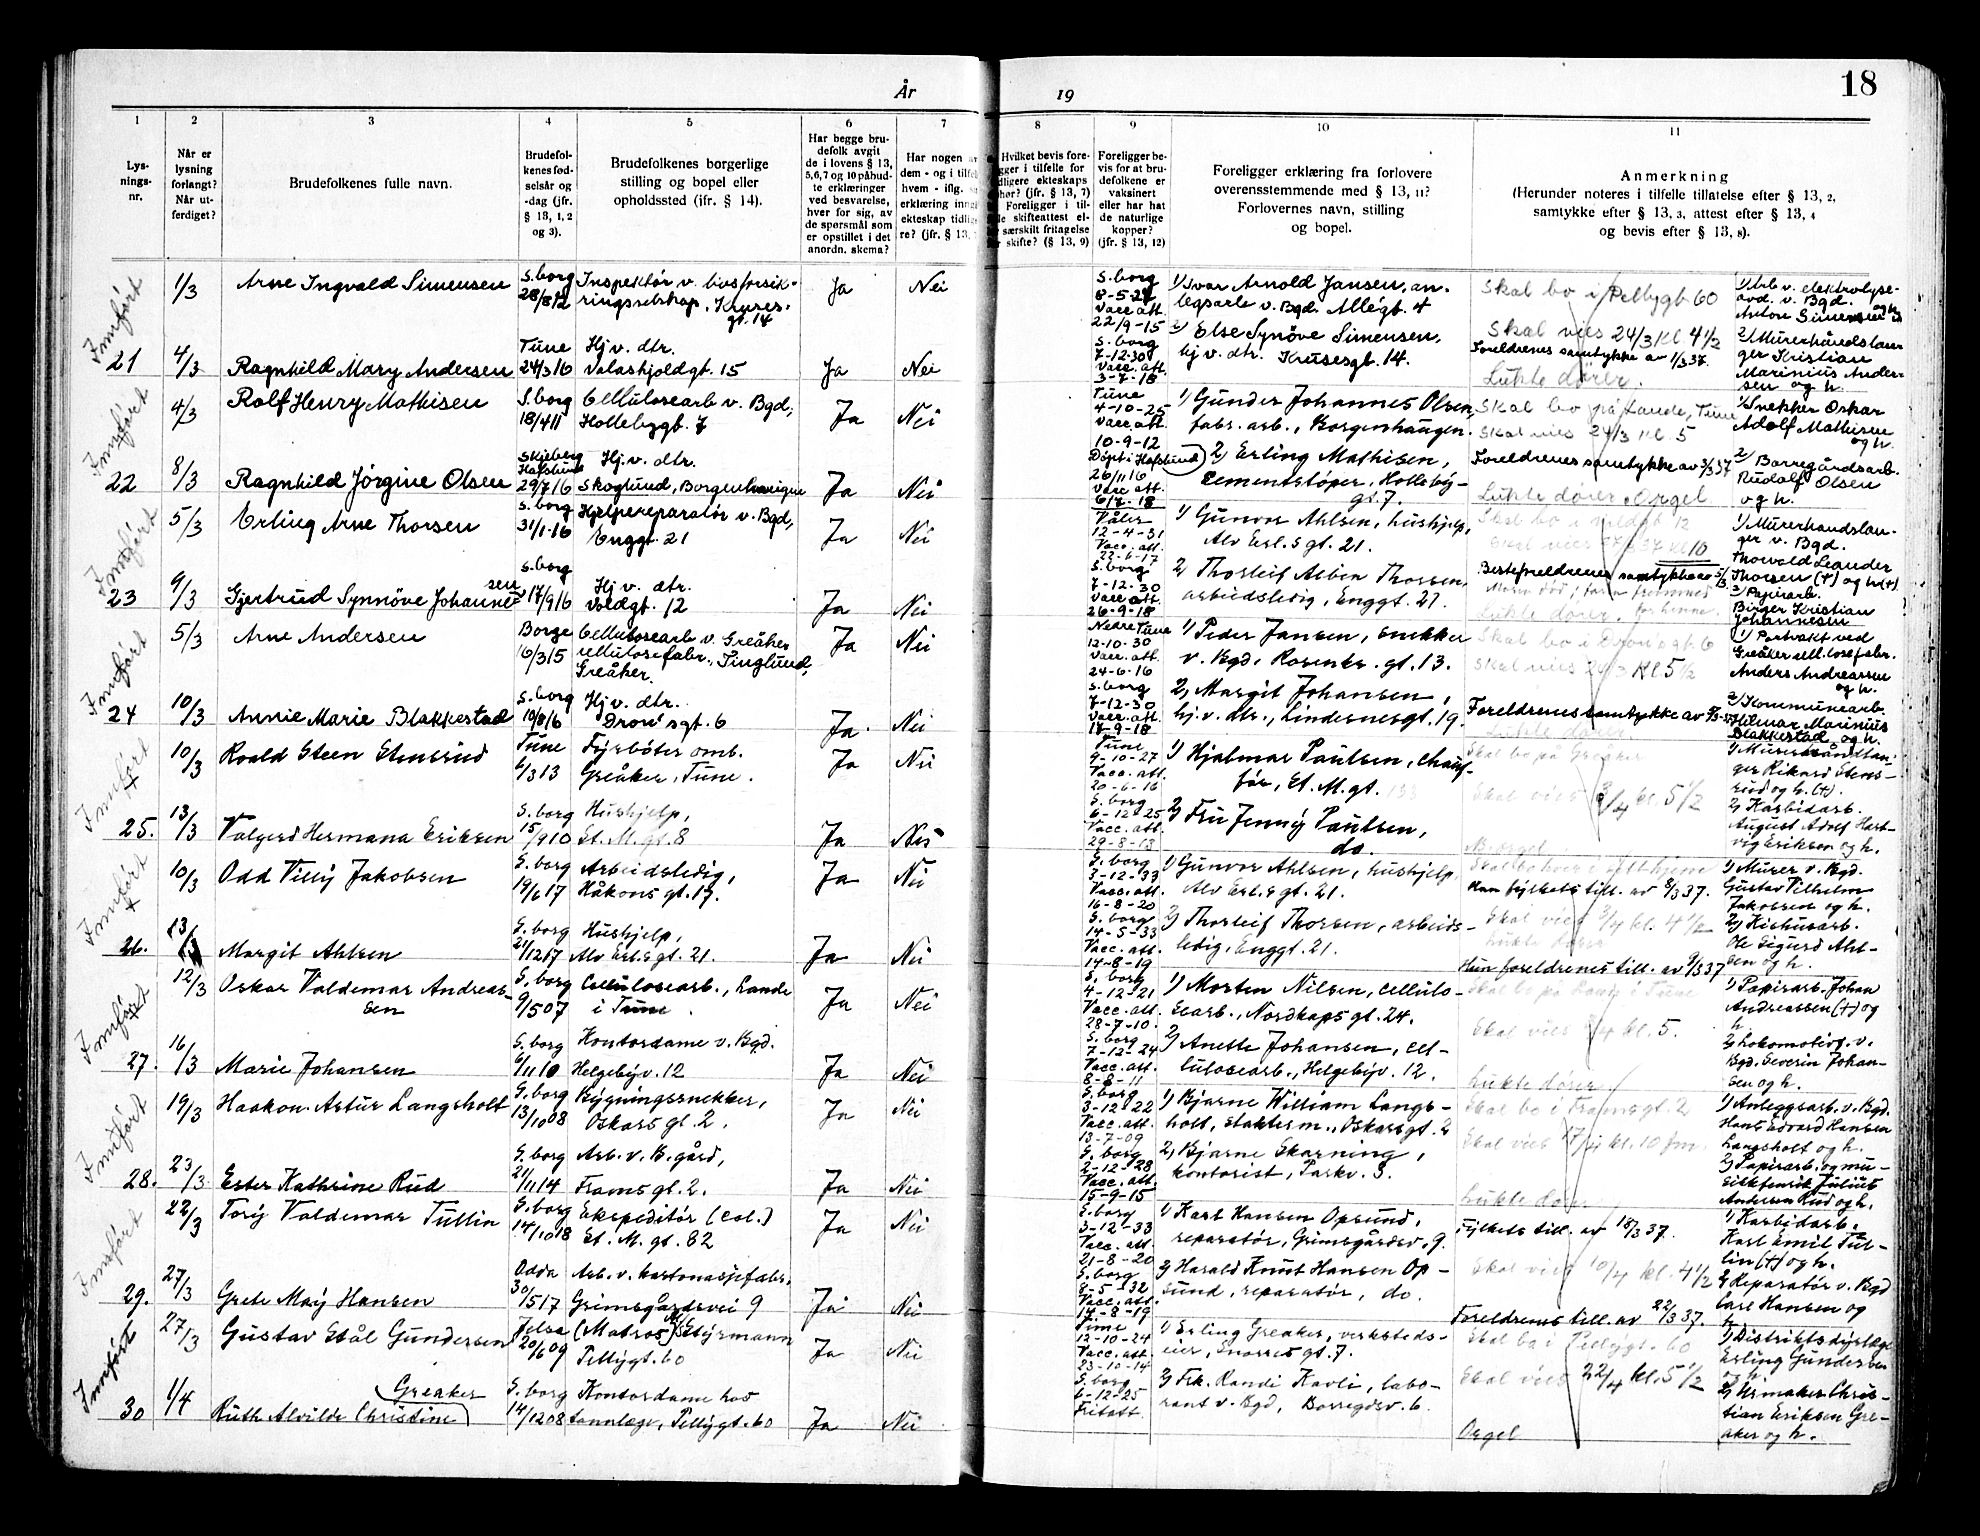 År
19
18
1
2
3
4
5
6
7
8
9
10
11
Lys-
nings-
nr.
Når er
lysning
forlangt?
Når ut-
ferdiget?
Brudefolkenes fulle navn.
Brudefol-
kenes fød-
selsår og
-dag (jfr.
§ 13, 1, 2
og 3).
Brudefolkenes borgerlige
stilling og bopel eller
opholdssted (jfr. § 14).
Har begge bru-
defolk avgit
de i lovens § 13,
5,6,7 og 10 påbud-
te erklæringer
ved besvarelse,
hver for sig, av
de spørsmål som
er opstillet i det
anordn. skema?
Har nogen av
dem - og i tilfel
hvem - iflg.
erklæring inng
ekteskap tidlig
re? (jfr. § 13,
Hvilket bevis fore-
gger i tilfelle for
dligere ekteskaps
hør? (jfr. § 13, 7)
Foreligger i til-
le skifteattest el-
særskilt fritagelse
skifte? (§ 13, 9)
Foreligger be-
vis for at bru-
defolkene er
vaksinert
eller har hat
de naturlige
kopper?
(jfr. § 13, 12)
Foreligger erklæring fra forlovere
overensstemmende med § 13, 11?
Forlovernes navn, stilling
og bopel.
Anmerkning
(Herunder noteres i tilfelle tillatelse efter § 13, 2,
samtykke efter § 13, 3, attest efter § 13, 4
og bevis efter § 13, 8).
Innført
1/3
Arne Ingvald Simensen
S.borg
28/8 12
Inspektør v. livsforsik-
ringsselskap, Kruses-
gt. 14
Ja
Nei
S.borg
8-5-27
Vacc. att.
22/9-15
1) Ivar Arnold Jansen, an-
legsarb v. Bgd. Allégt. 4
Skal bo i Pellygt 60
Skal vies 24/3 kl. 4 1/2
1) Arb v. elektrolyse-
avd. v. Bgd.
Anton Simensen og h
21
4/3
Ragnhild Mary Andersen
Tune
24/3 16
Hj v. dtr.
Valaskjoldgt. 15
Ja
Nei
S.borg
7-12-30
Vacc. att.
3-7-18
2) Else Synöve Simensen,
hj v. dtr. Krusesgt. 14.
Foreldrenes samtykke av 1/3 37.
Lukte dører.
2/ Murerhåndslan-
ger Kristian
Marinius Ander-
sen og h.
Innført
4/3
Rolf Henry Mathisen
S.borg
18/4 11
Cellulosearb v. Bgd,
Hollebygt. 7
Ja
Nei
Tune
4-10-25
Vacc. att.
10-9-12
1) Gunder Johannes Olsen,
fabr. arb., Borgenhaugen.
Skal bo på Lande, Tune
Skal vies 24/3 kl. 5
1/ Snekker Oskar
Adolf Mathisen
og h.
22
8/3
Ragnhild Jörgine Olsen
Skjeberg
Hafslund
29/7 16
Hj. v. dtr.
Skoglund, Borgenhaugen
Ja
Nei
Döpt i Hafslund
26/11 16
Vacc. att.
6/7-18
2) Erling Mathisen,
Cementstöper, Holleby-
gt. 7.
Foreldrenes samtykke av 3/3 37
Lukte dører Orgel
2/ Borregårdsarb.
Rudolf Olsen
og h.
Innført
5/3
Erling Arne Thorsen
S.borg
31/1-16
Hjelpereparatör v. Bgd,
Enggt. 21
Ja
Nei
Våler
12-4-31
Vacc. att.
22-6-17
1) Gunvor Ahlsen, hushjelp,
Alv Erl.s gt. 21.
1) Murerhandslan-
ger v. Bgd.
Thorvald Leander
Thorsen (+) og h(+)
23
9/3
Gjertrud Synnöve Johannes-
sen
S.borg
17/9 16
Hj v. dtr.
Voldgt. 12
Ja
Nei
S.borg
7-12-30
Vacc. att.
26-9-18
2) Thorleif Asben Thorsen,
arbeidsledig, Enggt. 21.
Besteforeldrenes samtykke av 5/3
Lukte dører.
2) Papirarb.
Birger Kristian
Johannesen
Innført
5/3
Arne Andersen
Borge
16/3 15
Cellulosearb v. Greåker
cellulosefabr., Tinglund,
Greåker.
Ja
Nei
Nedre Tune
12-10-30
Vacc. att.
24-6-16
1) Peder Jansen, snekker
v. Bgd. Rosenkr. gt. 13.
Skal vies 24/3 kl 5 1/2
1) Portvakt ved
Greåker cellulosefabr.
Anders Andreassen
og h.
24
10/3
Annie Marie Blakkestad
S.borg
19/8 16
Hj v. dtr.
Dronn sgt. 6
Ja.
Nei
S.borg
7-12-30
Vacc. att.
17-9-18
2) Margit Johansen,
hj. v. dtr., Lindesnesgt. 19.
2/ Kommunearb.
Hilmar Marinius
Blakkestad og h.
Innført
10/3
Roald Steen Stensrud
Tune
6/3 13
Fyrböter omb.
Greåker, Tune.
Ja
Nei
Tune
9-10-27
Vacc. att.
20-6-16
1) Hjalmar Paulsen, chauf-
för, St. M. gt. 133
Skal bo på Greåker
Skal vies 3/4 kl. 5 1/2
1) Murerhåndtlan-
ger Rikard Stens-
rud og h. (+).
25.
13/3
Valgerd Hermana Eriksen
S.borg
15/9 10
Hushjelp,
St. M. gt. 8
Ja
Nei
S.borg
6-12-25
Vacc. att.
29-8-13
2) Fru Jenny Paulsen,
do.
2) Karbidarb.
August Adolf Hart-
vig Eriksen og h.
Innført
10/3
Odd Villy Jakobsen
S.borg
19/6 17
Arbeidsledig,
Håkons gt. 17.
Ja
Nei
S.borg
3-12-33
Vacc. att.
16-8-20
1) Gunvor Ahlsen, hushjelp,
Alv Erl.s gt. 21.
Han fylkets till. av 8/3 37.
1) Murer v. Bgd.
Gustav Vilhelm
Jakobsen og h.
26.
13/3
Margit Ahlsen
S.borg
21/12 17
Hushjelp,
Alv Erl.s gt. 21.
Ja
Nei
S.borg
14-5-33
Vacc. att.
14-8-19
2) Thorleif Thorsen, arbeids-
ledig, Enggt. 21.
Skal vies 3/4 kl. 4 1/2
Lukte dører
Hun foreldrenes till. av 9/3 37
2) Kishusarb.
Ole Sigurd Ahl-
sen og h.
Innført
12/3
Oskar Valdemar Andreas-
sen
S.borg
9/5 07
Cellulosearb., Lande
i Tune.
Ja
Nei
S.borg
4-12-21
Vacc. att.
28-7-10.
1) Morten Nilsen, cellulo-
searb., Nordkaps gt. 24.
Skal bo på Lande i Tune
Skal vies 3/4 kl. 5.
1) Papirarb. Johan
Andreassen (+) og
h.
27.
16/3
Marie Johansen
S.borg
6/11 10
Kontordame v. Bgd.
Helgebyv. 12
Ja
Nei
S.borg
7-12-24
Vacc. att.
8-8-11
2) Anette Johansen, cel-
lulosearb., Helgebyv. 12.
Lukte dører
2) Lokomotivf. v.
Bgd. Severin Johan-
sen og h.
Innført
19/3
Haakon Artur Langsholt
S.borg
13/10 08
Bygningssnekker,
Oskars gt. 2.
Ja
Nei
S.borg
3-12-22
Vacc. att.
13-7-09
1) Bjarne William Langs-
holt, stakterm., Oskarsgt. 2
Skal bo i Framsgt. 2
Skal vies 17/4 kl. 10 fm.
1) Anleggsarb. v. Bgd.
Hans Edvard Hansen
Langsholt og h.
28.
23/3
Ester Kathrine Rud
S.borg
21/11 14
Arb. v. B.gård,
Frams gt. 2.
Ja
Nei
S.borg
2-12-28
Vacc. att.
15-9-15
2) Bjarne Skarning,
kontorist, Parkv. 3.
Lukte dører
2) Papirarb. og mu-
siker Henrik Julius
Andersen Rud og h.
Innført
22/3
Tory Valdemar Tullin
S.borg
14/10 18
Ekspeditör (col.)
St. M. gt. 82
Ja
Nei
S.borg
3-12-33
Vacc. att.
21-8-20
1) Karl Hansen Opsund,
reparatör, Grimsgårdsv. 9.
Fylkets till. av 18/3 37.
Skal vies 10/4 kl. 4 1/2
1) Karbidarb.
Karl Emil Tul-
lin (+) og h.
29.
27/3
Grete May Hansen
Odda
30/1 517
Arb. v. kartonasjefabr.
Grimsgårdsvei 9
Ja
Nei
S.borg
8-5-32
Vacc. att.
14-8-19
2) Harald Knut Hansen Op-
sund, reparatör, do.
Foreldrenes till. av 22/3 37.
2) Reparatör v. Bgd
Carl Hansen og
h.
Innført
27/3
Gustav Stål Gundersen
Jelsa
20/6 09
(Matros) Styrmann
Pellygt. 60
Ja
Nei
Time
12-10-24
Vacc. att.
23-10-14
1) Erling Greaker, verksteds-
eier, Snorres gt. 7.
Skal bo i Pellygt. 60
Skal vies 22/4 kl. 5 1/2
1) Distriktsdyrlæge
Erling Gundersen
og h.
30
1/4
Greaker
Ruth Alvilde Christine
S.borg
14/12 08
Kontordame hos
tannlæge, Pellygt. 60
Ja
Nei
S.borg
6-12-25
Fritatt.
2) Frk. Randi Kavli, labo-
rant v. Bgd, Borregdsv. 6.
Orgel
2) Urmaker Chris-
tian Eriksen Gre-
aker og h.